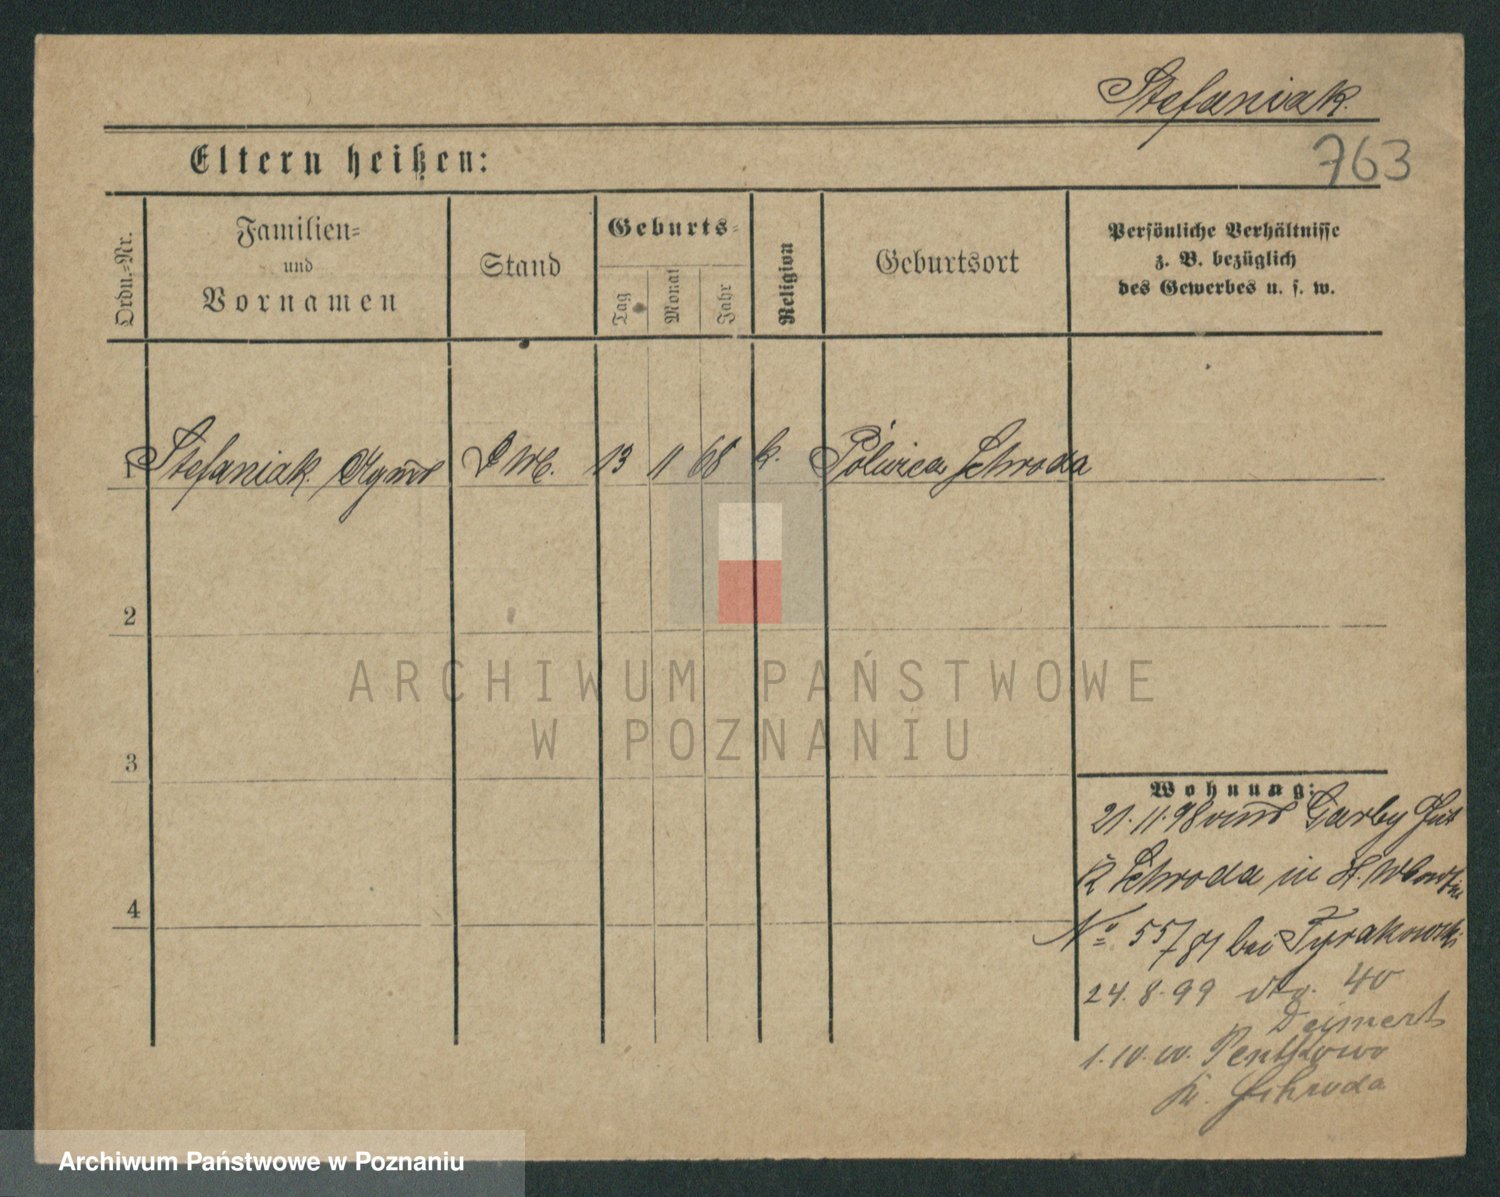 Stefaniak.
763
Eltern heißen:
Ordn.-Nr.
Familien-
und
Vornamen
Stand
Geburts-
Tag
Monat
Jahr
Religion
Geburtsort
Persönliche Verhältnisse
z. B. bezüglich
des Gewerbes u. s. w.
1 Stefaniak 13 11 68 k. Pólwica Schroda
2
3
4
Wohnung:
21.11.98 Garby Gut
K Schroda in St.
No 55/81 bei Tyrakowski
24.8.99 40
1.10.00. Pentkowo
Kr. Schroda
ARCHIWUM PAŃSTWOWE
W POZNANIU
Archiwum Państwowe w Poznaniu